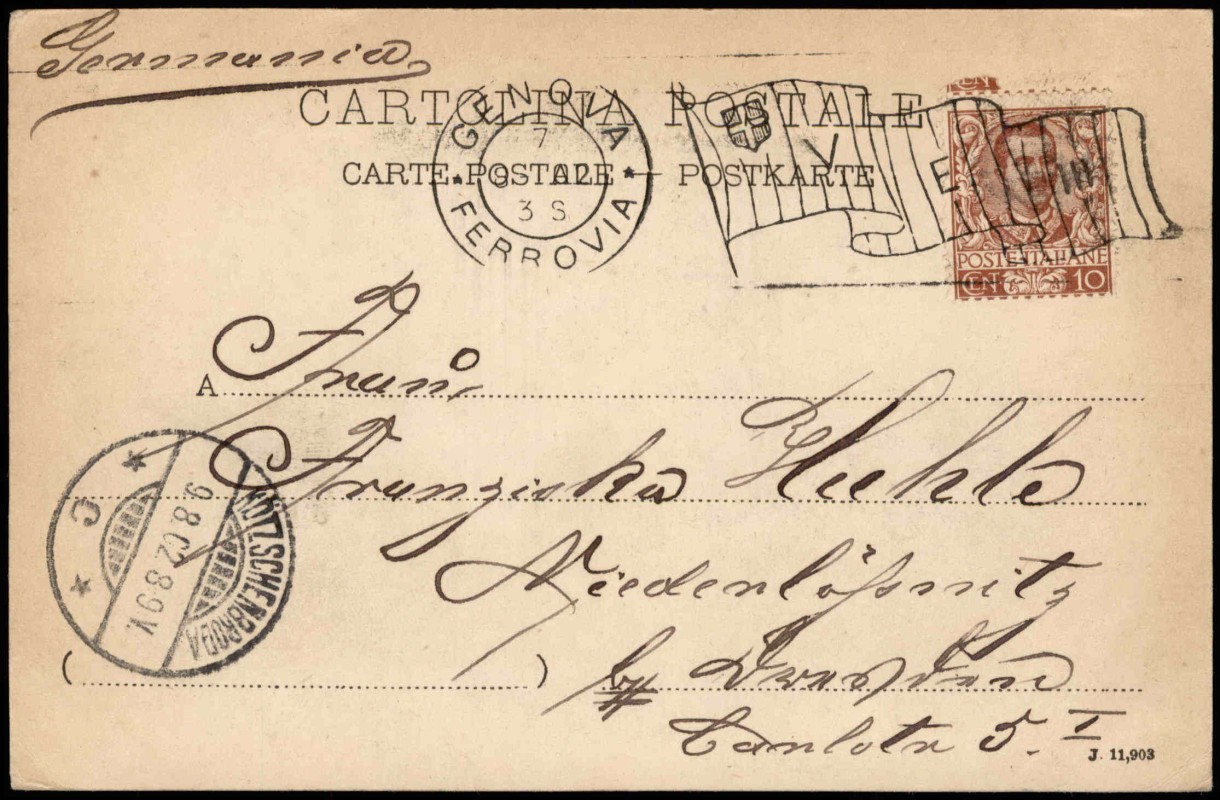 Germania
CARTOLINA POSTALE
CARTE POSTALE — POSTKARTE
GENOVA
7
9 - 02
3 S
* FERROVIA *
V E III
POSTE ITALIANE
CENT 10
A Frau,
Franziska Hehle
Niederlößnitz
b/ Dresden
Carlstr 5. I
KÖTZSCHENBRODA
9.8.02.8-9V.
* C *
( )
J. 11,903